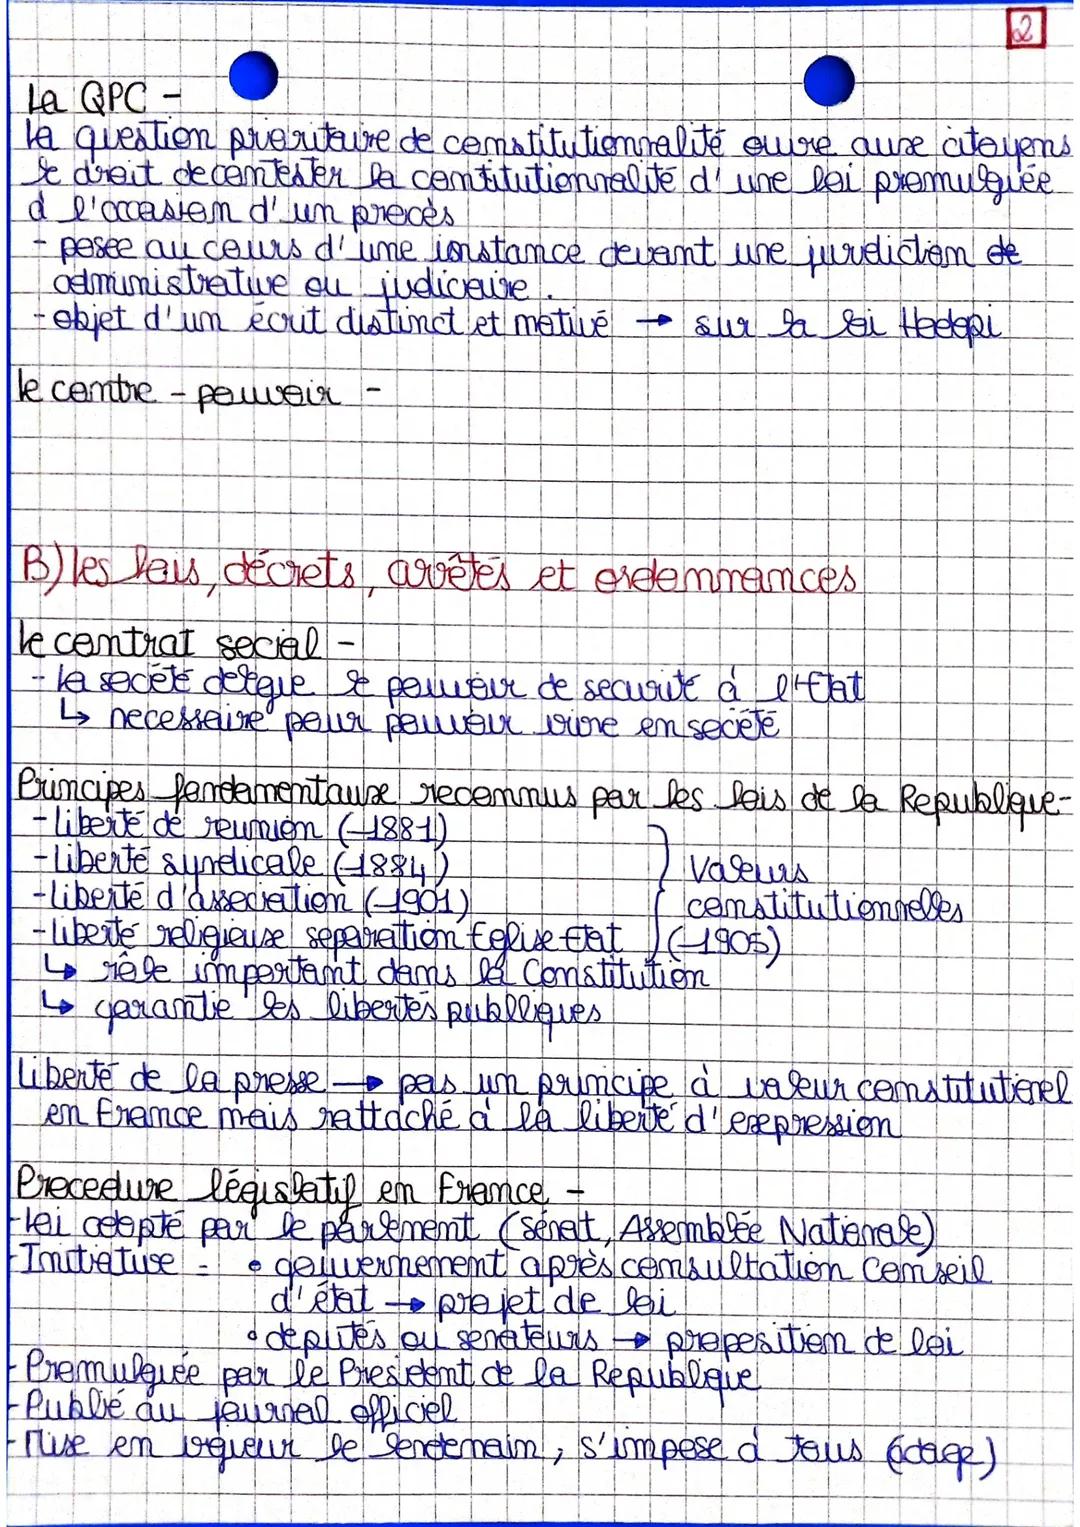 2
La QPC -
la question prioritaire de constitutionnalité ouvre aux citoyens
le droit de contester la contitutionnalité d'une loi promulguée
à l'occasion d'un procès
- posée au cours d'une instance devant une juridiction de
administrative ou judiciaire.
- objet d'un écrit distinct et motivé → sur la loi Hadopi
le contre - pouvoir -
B) les lois, décrets, arrêtés et ordonnances
le contrat social -
- la société délègue le pouvoir de securité à l'Etat
↳ necessaire pour pouvoir vivre en société
Principes fondamentaux reconnus par les lois de la Republique-
- liberté de reunion (1881)
- liberté syndicale (1884)
- liberté d'association (1901)
- liberté religieuse separation Eglise Etat (1905)
} Valeurs
constitutionnelles
↳ rôle important dans la Constitution
↳ garantie les libertés publliques
liberté de la presse → pas un principe à valeur constitutionel
en France mais rattaché à la liberté d'expression
Procedure législatif en France -
- loi adopté par le parlement (sénat, Assemblée Nationale)
- Initiative = • gouvernement après consultation conseil
d'état → projet de loi
• deputés ou senateurs → proposition de loi
- Promulguée par le President de la Republique
- Publié au journal officiel
- Mise en vigueur le lendemain, s'impose à tous (adage)